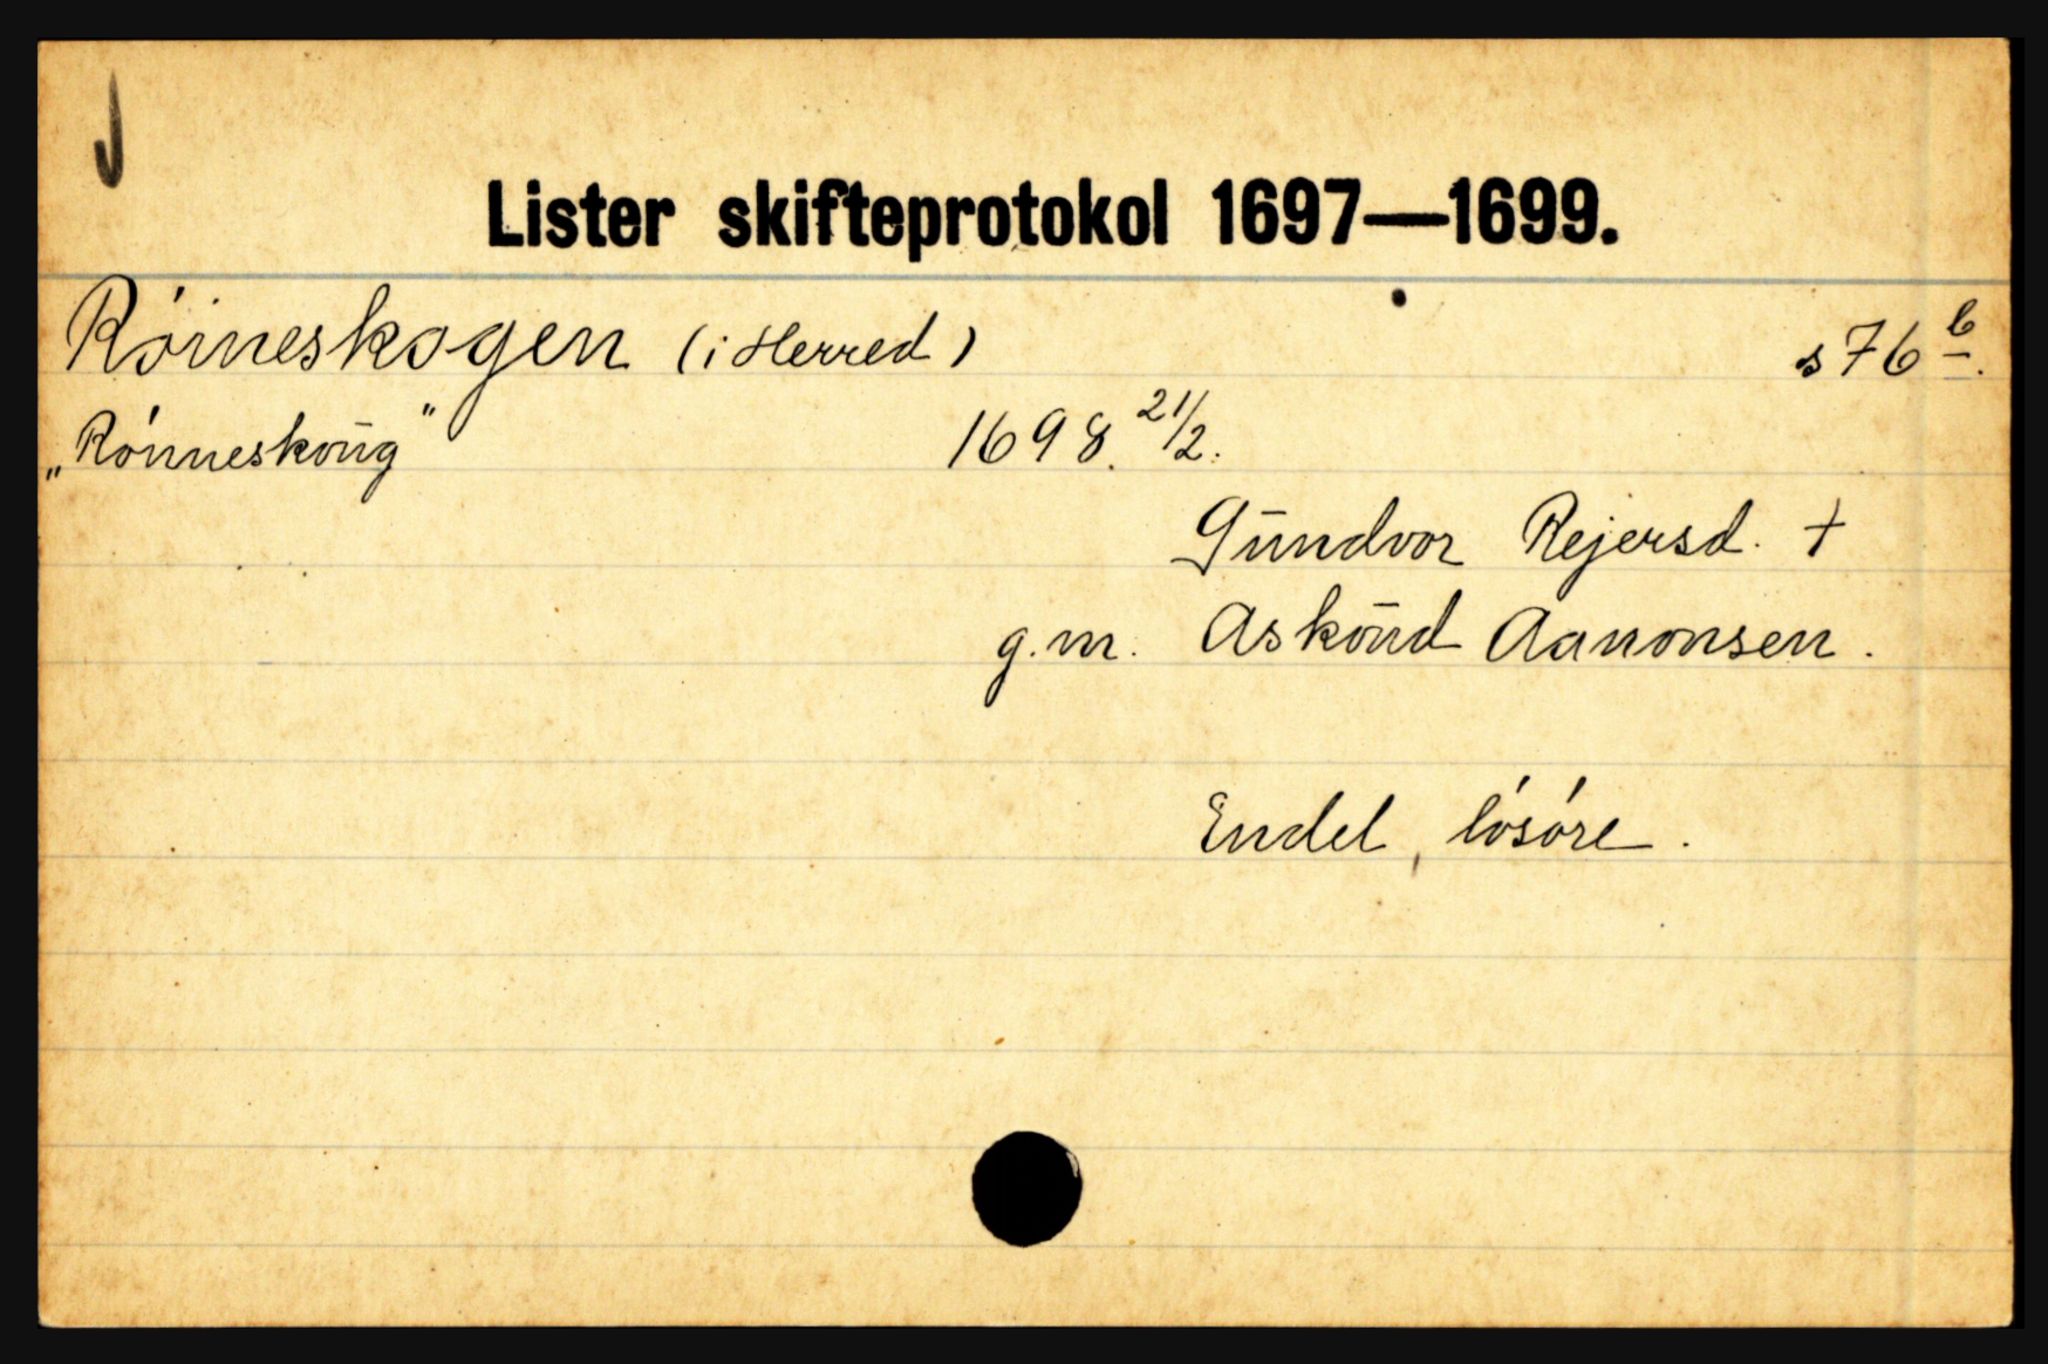 Lister skifteprotokol 1697—1699.
Röineskogen (i Herred) s 76 b.
„Rönneskoug" 1698. 21/2.
Gundvor Rejersd. +
g.m. Askoud Aanonsen.
Endel lösöre.